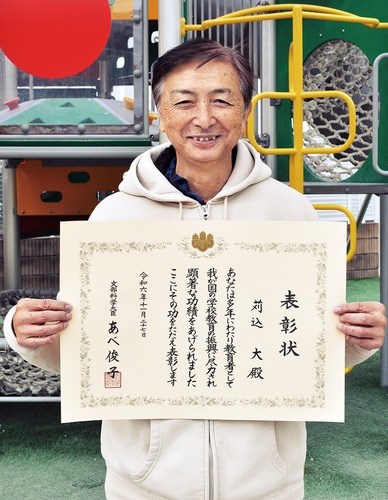 表彰状
苅込 大 殿
あなたは多年にわたり教育者として
我が国の学校教育の振興に尽力され
顕著な功績をあげられました
ここにその功をたたえ表彰します
令和六年十一月二十七日
文部科学大臣 あべ俊子